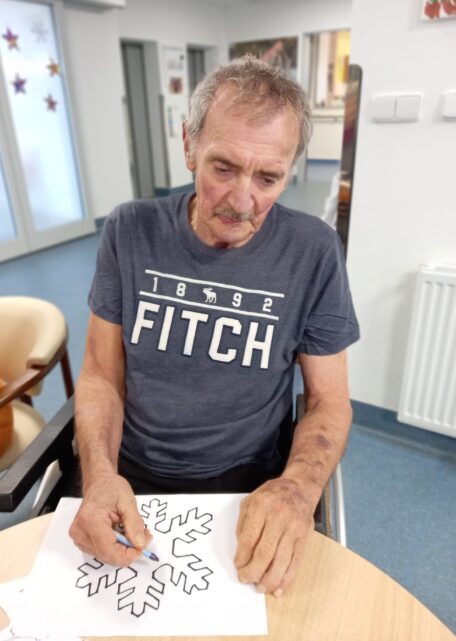 1892
FITCH